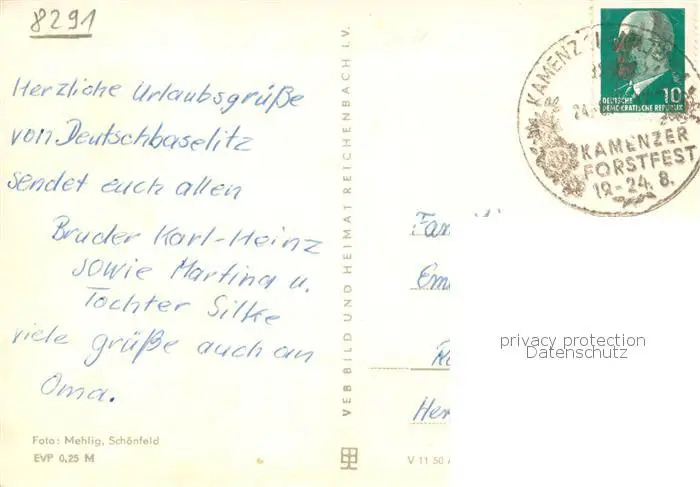 8291
Herzliche Urlaubsgrüße
von Deutschbaselitz
sendet euch allen
Bruder Karl-Heinz
sowie Martina u.
Tochter Silke
viele grüße auch an
Oma.
Foto: Mehlig, Schönfeld
EVP 0,25 M
VEB BILD UND HEIMAT REICHENBACH I.V.
V 11 50
10
DEUTSCHE
DEMOKRATISCHE REPUBLIK
KAMENZ
KAMENZER
FORSTFEST
19.-24.8.
Fam
Her
privacy protection
Datenschutz